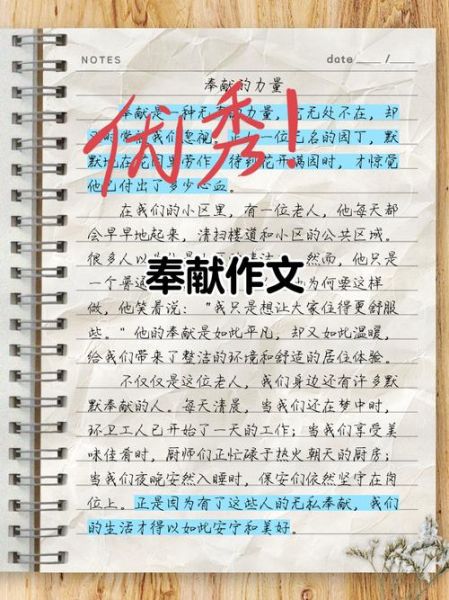 NOTES
date ___ /___
奉献的力量
奉献是一种无 的力量，它无处不在，却
又时常 我们忽视。正如一位无名的园丁，默
默地在花园里劳作，待到花开满园时，才惊觉
他已付出了多少心血。
优秀！
在我们的小区里，有一位老人，他每天都
会早早地起来，清扫楼道和小区的公共区域。
很多人以 然而，他只是
一个 为何要这样
奉献作文
做，他笑着说："我只是想让大家住得更舒服
些。"他的奉献是如此平凡，却又如此温暖，
给我们带来了整洁的环境和舒适的居住体验。
不仅仅是这位老人，我们身边还有许多默
默奉献的人。每天清晨，当我们还在梦中时，
环卫工人已开始了一天的工作；当我们享受美
味佳肴时，厨师们正忙碌于热火朝天的厨房；
当我们夜晚安然入睡时，保安们依然坚守在岗
位上。正是因为有了这些人的无私奉献，我们
的生活才得以如此安宁和美好。